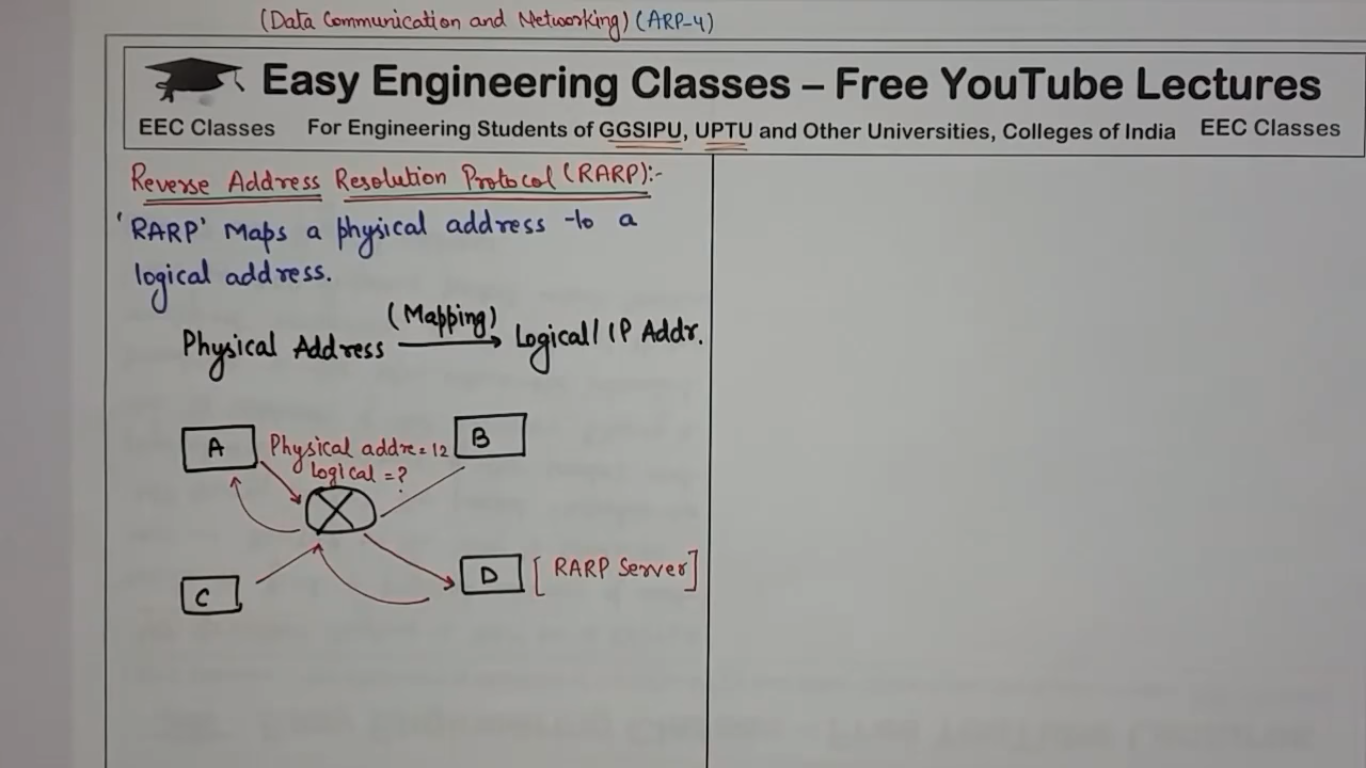 (Data Communication and Networking) (ARP-4)
Easy Engineering Classes – Free YouTube Lectures
EEC Classes For Engineering Students of GGSIPU, UPTU and Other Universities, Colleges of India EEC Classes
Reverse Address Resolution Protocol (RARP):-
'RARP' Maps a physical address to a
logical address.
(Mapping)
Physical Address → Logical/IP Addr.
A Physical addre=12 B
logical =?
D [RARP Server]
C